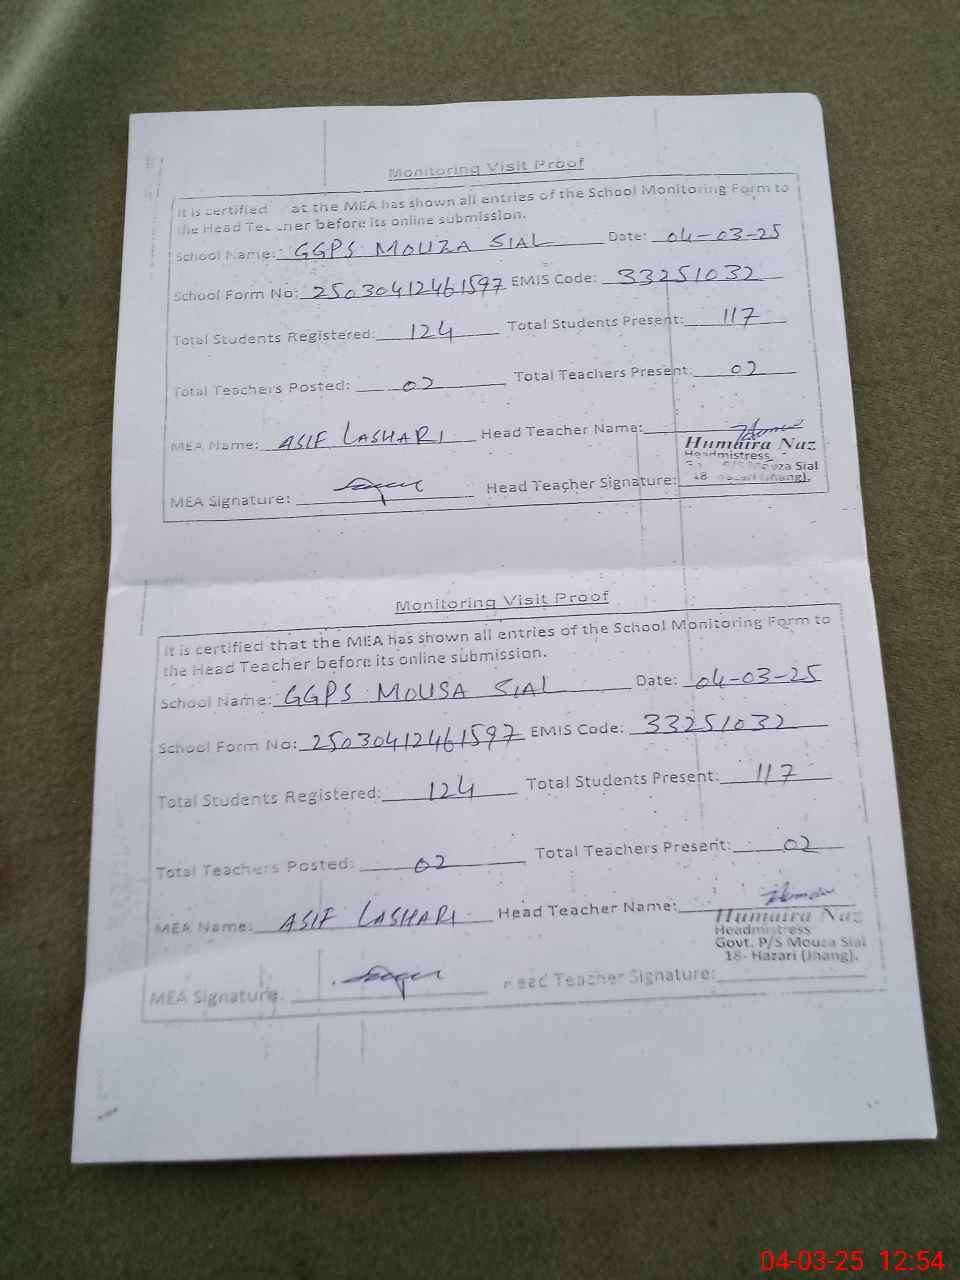 Monitoring Visit Proof
It is certified at the MEA has shown all entries of the School Monitoring Form to
the Head Teacher before its online submission.
School Name: GGPS MOUZA SIAL Date: 04-03-25
School Form No: 25030412461597 EMIS Code: 33251032
Total Students Registered: 124 Total Students Present: 117
Total Teachers Posted: 02 Total Teachers Present: 02
MEA Name: ASIF LASHARI Head Teacher Name:
Humaira Naz
Headmistress
P/S Mouza Sial
MEA Signature: Head Teacher Signature: 18 (Jhang).
Monitoring Visit Proof
It is certified that the MEA has shown all entries of the School Monitoring Form to
the Head Teacher before its online submission.
School Name: GGPS MOUSA SIAL Date: 04-03-25
School Form No: 25030412461597 EMIS Code: 33251032
Total Students Registered: 124 Total Students Present: 117
Total Teachers Posted: 02 Total Teachers Present: 02
MEA Name: ASIF LASHARI Head Teacher Name:
Humaira Naz
Headmistress
Govt. P/S Mouza Sial
18- Hazari (Jhang).
MEA Signature: Head Teacher Signature:
04-03-25 12:54